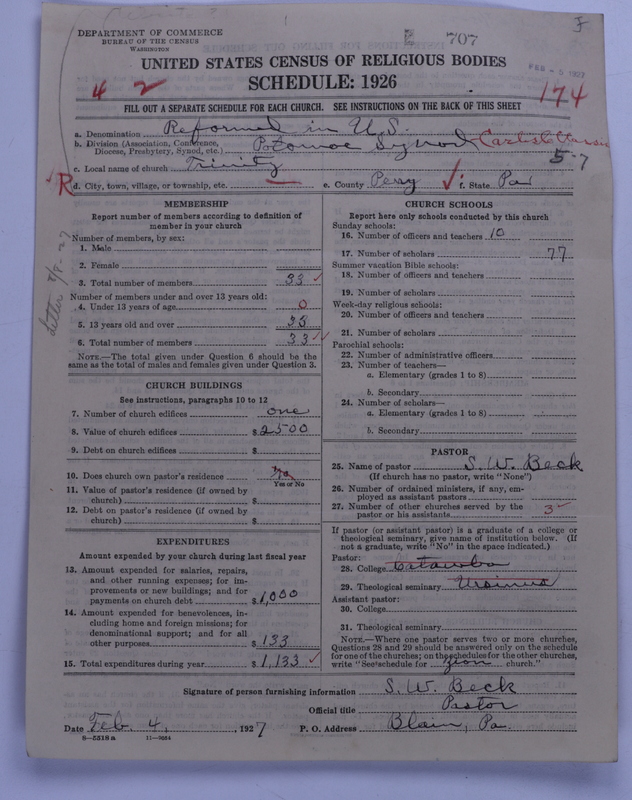 DEPARTMENT OF COMMERCE
BUREAU OF THE CENSUS
WASHINGTON
E 707
UNITED STATES CENSUS OF RELIGIOUS BODIES
FEB - 5 1927
SCHEDULE: 1926
4 2
174
FILL OUT A SEPARATE SCHEDULE FOR EACH CHURCH. SEE INSTRUCTIONS ON THE BACK OF THIS SHEET
a. Denomination Reformed in U.S.
b. Division (Association, Conference, Diocese, Presbytery, Synod, etc.) Potomac Synod
5-7
c. Local name of church Trinity
R d. City, town, village, or township, etc. e. County Perry f. State Pa
Letter 3/8-27
MEMBERSHIP
Report number of members according to definition of
member in your church
Number of members, by sex:
1. Male
2. Female
3. Total number of members 33
Number of members under and over 13 years old:
4. Under 13 years of age 0
5. 13 years old and over 33
6. Total number of members 33
NOTE.—The total given under Question 6 should be the
same as the total of males and females given under Question 3.
CHURCH BUILDINGS
See instructions, paragraphs 10 to 12
7. Number of church edifices one
8. Value of church edifices $2500
9. Debt on church edifices $
10. Does church own pastor's residence no
Yes or No
11. Value of pastor's residence (if owned by
church) $
12. Debt on pastor's residence (if owned by
church) $
EXPENDITURES
Amount expended by your church during last fiscal year
13. Amount expended for salaries, repairs,
and other running expenses; for im-
provements or new buildings; and for
payments on church debt $1,000
14. Amount expended for benevolences, in-
cluding home and foreign missions; for
denominational support; and for all
other purposes $133
15. Total expenditures during year $1,133
CHURCH SCHOOLS
Report here only schools conducted by this church
Sunday schools:
16. Number of officers and teachers 10
17. Number of scholars 77
Summer vacation Bible schools:
18. Number of officers and teachers
19. Number of scholars
Week-day religious schools:
20. Number of officers and teachers
21. Number of scholars
Parochial schools:
22. Number of administrative officers
23. Number of teachers—
a. Elementary (grades 1 to 8)
b. Secondary
24. Number of scholars—
a. Elementary (grades 1 to 8)
b. Secondary
PASTOR
25. Name of pastor S. W. Beck
(If church has no pastor, write "None")
26. Number of ordained ministers, if any, em-
ployed as assistant pastors
27. Number of other churches served by the
pastor or his assistants 3
If pastor (or assistant pastor) is a graduate of a college or
theological seminary, give name of institution below. (If
not a graduate, write "No" in the space indicated.)
Pastor:
28. College Catawba
29. Theological seminary Ursinus
Assistant pastor:
30. College
31. Theological seminary
NOTE.—Where one pastor serves two or more churches,
Questions 28 and 29 should be answered only on the schedule
for one of the churches; on the schedules for the other churches,
write "See schedule for Zion church."
Signature of person furnishing information S. W. Beck
Official title Pastor
Date Feb. 4, 1927 P. O. Address Blain, Pa.
8—5518a 11—9064